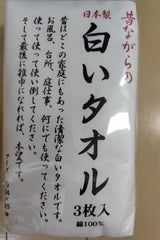 日本製
昔ながらの
白いタオル
3枚入
綿100%
昔はどこの家庭にもあった清潔な白いタオルです。
お風呂、台所、庭仕事、何にでもどんどん
使って使って使い倒してください。
そして最後に雑巾になれれば、本望です。
サイズ